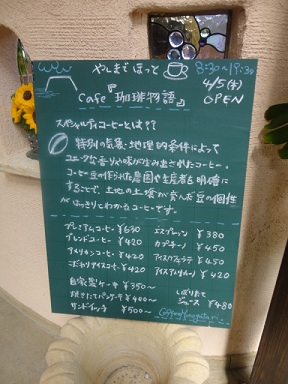 やしまでほっと
8:30~19:30
4/5(木)
OPEN
『Cafe 珈琲物語』
スペシャルティコーヒーとは??
特別の気象・地理的条件によって
ユニークな香りや味が生み出されたコーヒー。
コーヒー豆の作られた農園や生産者を明確に
することで、土地の土壌が育んだ豆の個性
がはっきりとわかるコーヒーです。
プレミアムコーヒー ¥630
ブレンドコーヒー ¥420
アメリカンコーヒー ¥420
こだわりアイスコーヒー ¥420
エスプレッソ ¥380
カプチーノ ¥450
アイスカフェラテ ¥450
アイスアメリカーノ ¥420
自家製ケーキ ¥350~
焼きたてパンケーキ ¥400~
サンドイッチ ¥500~
しぼりたて
ジュース ¥480
Coffee Monogatari